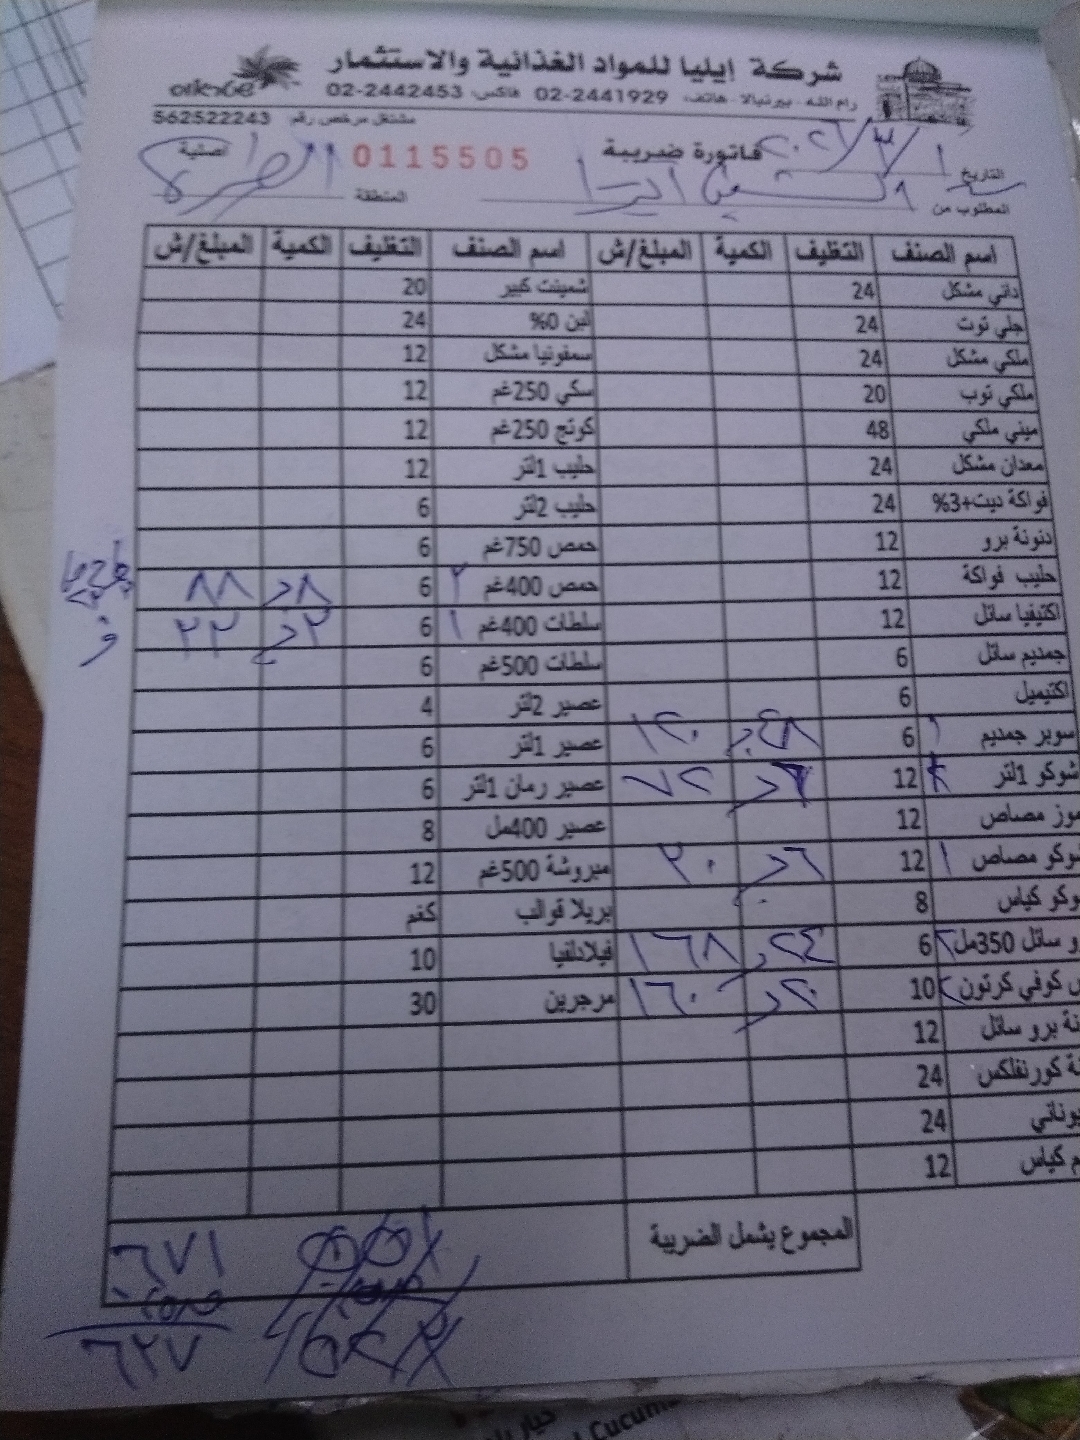 شركة إيليا للمواد الغذائية والاستثمار
رام الله - بيرنبالا - هاتف: 02-2441929 فاكس: 02-2442453
مشتغل مرخص رقم 562522243
فاتورة ضريبة 0115505 أصلية
التاريخ
المطلوب من المنطقة
اسم الصنف التغليف الكمية المبلغ/ش اسم الصنف التغليف الكمية المبلغ/ش
داني مشكل 24 شمينت كبير 20
جلي توت 24 لبن 0% 24
ملكي مشكل 24 سمفونيا مشكل 12
ملكي توب 20 سكي 250غم 12
ميني ملكي 48 كوتج 250غم 12
معدان مشكل 24 حليب 1لتر 12
فواكة ديت+3% 24 حليب 2لتر 6
دنونة برو 12 حمص 750غم 6
حليب فواكة 12 حمص 400غم ٢ 6 ٨٨
اكتيفيا سائل 12 سلطات 400غم ١ 6 ٢٢
جمديم سائل 6 سلطات 500غم 6
اكتيميل 6 عصير 2لتر 4
سوبر جمديم ١ 6 ١٢٠ عصير 1لتر 6
شوكو 1لتر 12 ٧٢ عصير رمان 1لتر 6
موز مصاص 12 عصير 400مل 8
شوكو مصاص ١ 12 ٢٠ مبروشة 500غم 12
وكو كياس 8 بريلا قوالب كغم
و سائل 350مل ٢ 6 ٢٤ ١٦٨ فيلادلفيا 10
س كوفي كرتون ٢ 10 ٢٠ ١٦٠ مرجرين 30
نة برو سائل 12
نة كورنفلكس 24
يوناني 24
م كياس 12
المجموع يشمل الضريبة ٦٧١
٦٢٧